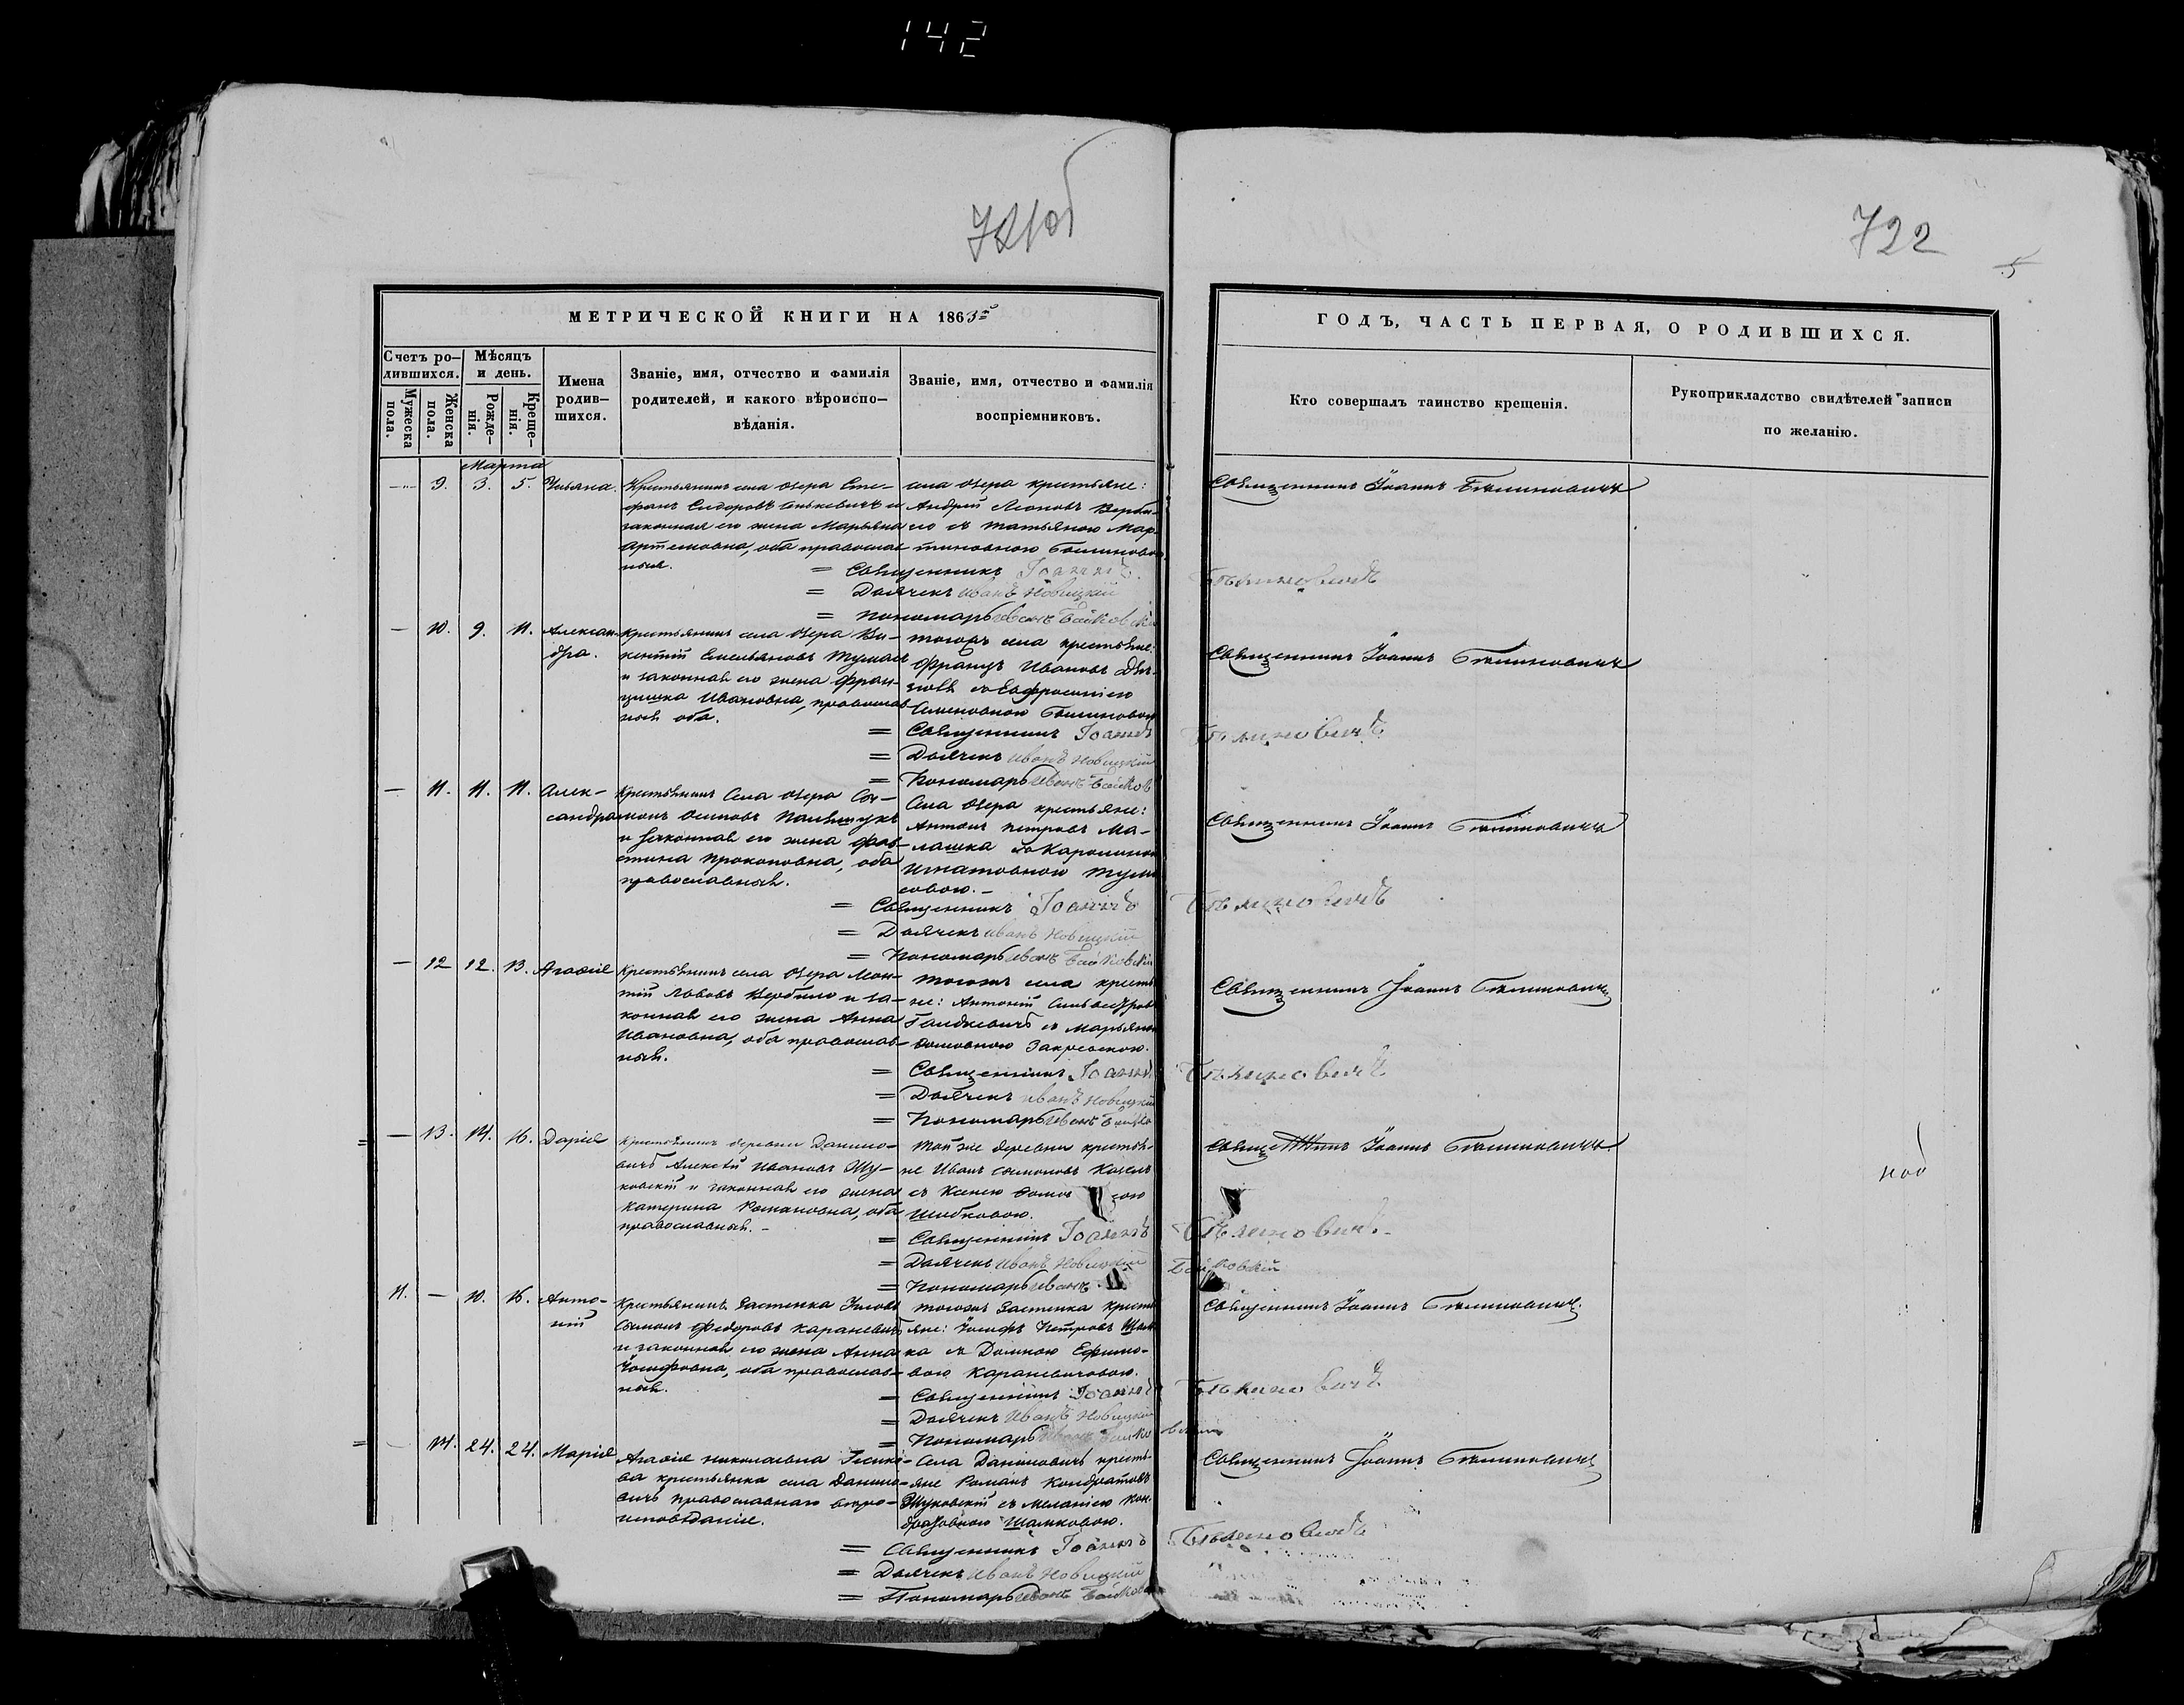 142
721об
722
5
МЕТРИЧЕСКОЙ КНИГИ НА 1863й
Счетъ ро-
дившихся.
Мужеска
пола.
Женска
пола.
Мѣсяцъ
и день.
Рожде-
нія.
Креще-
нія.
Имена
родив-
шихся.
Званіе, имя, отчество и фамилія
родителей, и какого вѣроиспо-
вѣданія.
Званіе, имя, отчество и фамилія
воспріемниковъ.
ГОДЪ, ЧАСТЬ ПЕРВАЯ, О РОДИВШИХСЯ.
Кто совершалъ таинство крещенія.
Рукоприкладство свидѣтелей записи
по желанію.
Марта
9. 3. 5. Ульяна.
Крестьянинъ села Озера Сте-
фанъ Сидоровъ и
законная его жена Марьяна
Артемовна, оба православ-
ныя.
села Озера крестьяне:
Андрей Леоновъ Верби-
ло съ Татьяною Мар-
тиновною
Священникъ Іоаннъ Бѣлиновичъ
= Священникъ Іоаннъ Бѣлиновичъ
= Дьячекъ Иванъ Новицкій
= Пономарь Иванъ Байковскій
10. 9. 11. Алексан-
дра.
Крестьянинъ села Озера Ви-
кентій Емельяновъ Тумаш
и законная его жена Фран-
цишка Ивановна, православ-
ныя оба.
тогожъ села крестьяне:
Францъ Ивановъ
съ Евфросиніею
Семеновною
Священникъ Іоаннъ Бѣлиновичъ
= Священникъ Іоаннъ Бѣлиновичъ
= Дьячекъ Иванъ Новицкій
= Пономарь Иванъ Байков
11. 11. 11. Алек-
сандра
Крестьянинъ Села Озера Си-
монъ Осиповъ Полещукъ
и законная его жена
Прокоповна, оба
православныя.
Села Озера крестьяне:
Антонъ Петровъ Ма-
лашка съ Каролиною
Игнатовною
совою.-
Священникъ Іоаннъ Бѣлиновичъ
= Священникъ Іоаннъ Бѣлиновичъ
= Дьячекъ Иванъ Новицкій
= Пономарь Иванъ Байковскій
12 12. 13. Агафія
Крестьянинъ села Озера Леон-
тій Львовъ Вербило и за-
конная его жена Анна
Ивановна, оба православ-
ныя.
тогожъ села крестья-
не: Антоній Сильвестровъ
съ Марьяною
Закревскою.
Священникъ Іоаннъ Бѣлиновичъ
= Священникъ Іоаннъ Бѣлиновичъ
= Дьячекъ Иванъ Новицкій
= Пономарь Иванъ
13. 14. 16. Дарія
Крестьянинъ деревни Данило-
вичъ Алексѣй Ивановъ Жу-
ковскій и законная его жена
Катерина Романовна, оба
православныя.-
той же деревни крестья-
не Иванъ Симоновъ Козелъ
съ Ксеніею
Шибковою.
Священникъ Іоаннъ Бѣлиновичъ
= Священникъ Іоаннъ Бѣлиновичъ
= Дьячекъ Иванъ Новицкій
= Пономарь Иванъ Байковскій
11. 10. 16. Анто-
ній
Крестьянинъ Застенка
Симонъ Федоровъ Караневичъ
и законная его жена Анна
Іосифовна, оба православ-
ныя.
тогожъ Застенка кресть-
яне: Іосифъ Петровъ
ка съ Домною Ефимо-
вою Караневичовою.
Священникъ Іоаннъ Бѣлиновичъ
= Священникъ Іоаннъ Бѣлиновичъ
= Дьячекъ Иванъ Новицкій
= Пономарь Иванъ Байковскій
14. 24. 24. Марія
Агафія Николаевна
ва крестьянка села Данило-
вичъ православнаго вѣро-
исповѣданія.
Села Даниловичъ кресть-
яне Романъ Кондратовъ
Жуковскій съ Меланіею Кон-
дратовною Шамковою.
Священникъ Іоаннъ Бѣлиновичъ
= Священникъ Іоаннъ Бѣлиновичъ
= Дьячекъ Иванъ Новицкій
= Пономарь Иванъ Байковс